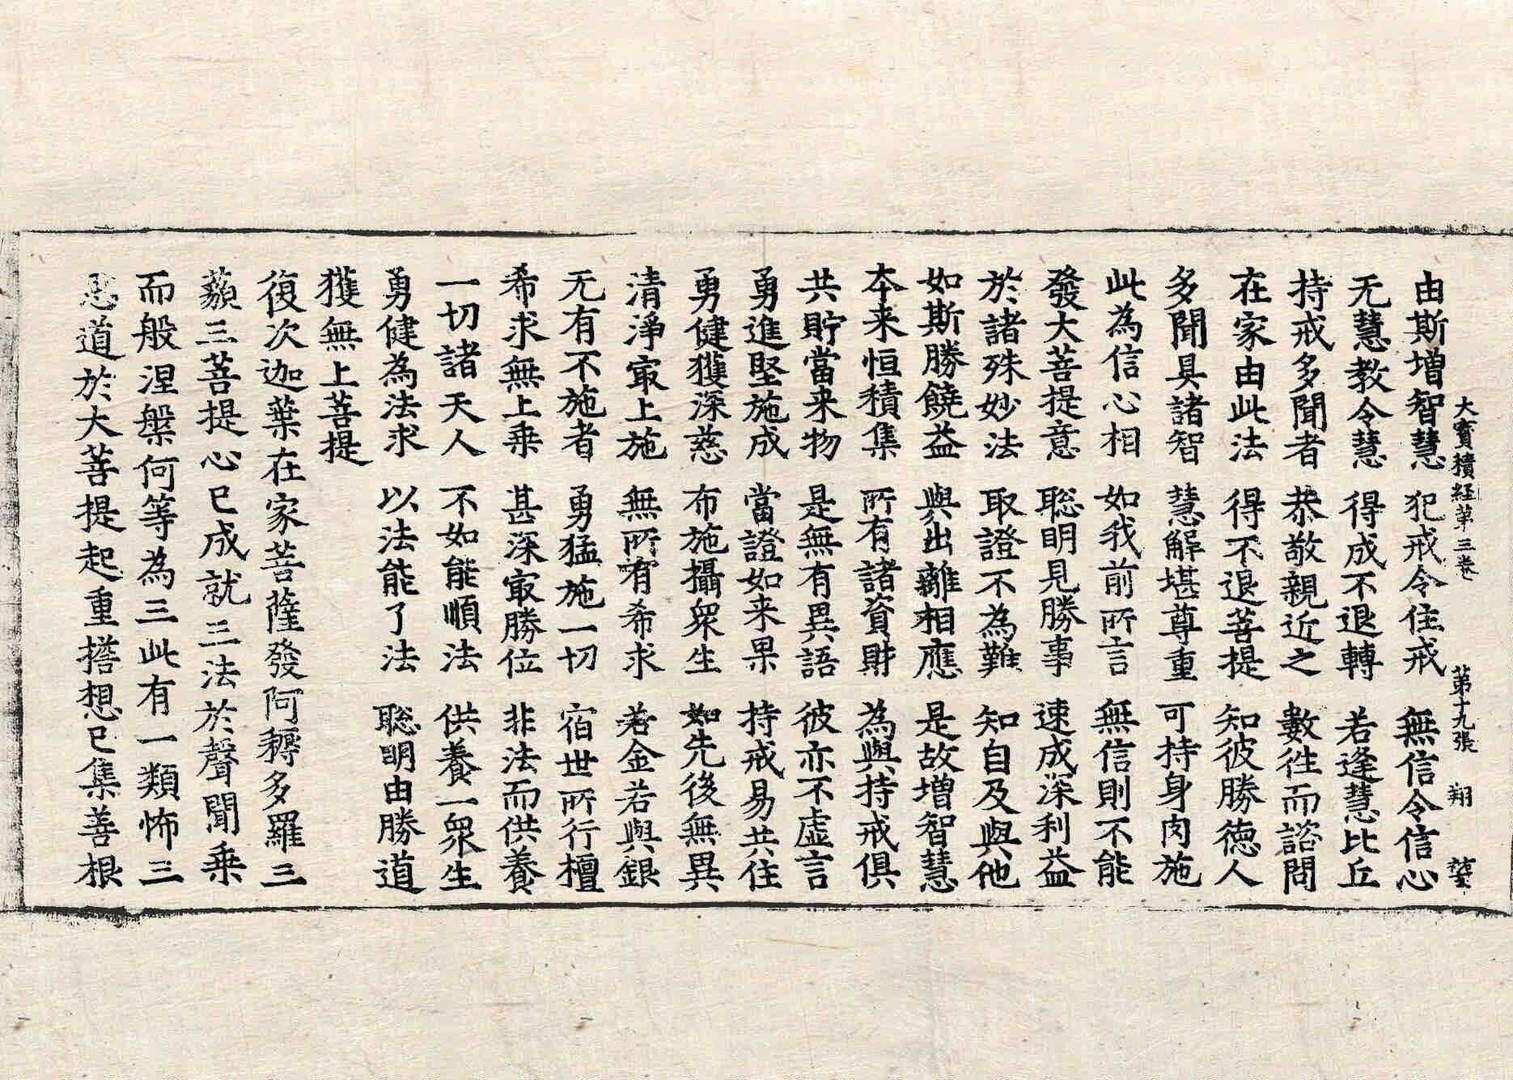 大寶積経苐三卷 苐十九張 翔
由斯增智慧 犯戒令住戒 無信令信心
无慧教令慧 得成不退轉 若逢慧比丘
持戒多聞者 恭敬親近之 數往而諮問
在家由此法 得不退菩提 知彼勝德人
多聞具諸智 慧解堪尊重 可持身肉施
此為信心相 如我前所言 無信則不能
發大菩提意 聡明見勝事 速成深利益
於諸殊妙法 取證不為難 知自及與他
如斯勝饒益 與出離相應 是故增智慧
本来恒積集 所有諸資財 為與持戒俱
共貯當来物 是無有異語 彼亦不虛言
勇進堅施成 當證如来果 持戒易共住
勇健獲深慈 布施攝衆生 如先後無異
清淨㝡上施 無所有希求 若金若與銀
无有不施者 勇猛施一切 宿世所行檀
希求無上乗 甚深㝡勝位 非法而供養
一切諸天人 不如能順法 供養一衆生
勇健為法求 以法能了法 聡明由勝道
獲無上菩提
復次迦葉在家菩薩發阿耨多羅三
藐三菩提心已成就三法於聲聞乗
而般涅槃何等為三此有一類怖三
惡道於大菩提起重擔想已集善根